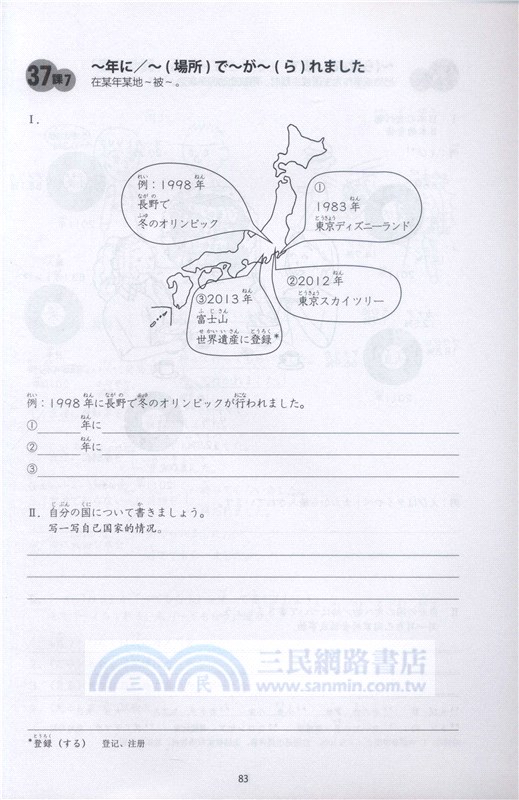 37課7
～年に／～(場所)で～が～(ら)れました
在某年某地～被～。
Ⅰ.
例：1998年
長野で
冬のオリンピック
①
1983年
東京ディズニーランド
②2012年
東京スカイツリー
③2013年
富士山
世界遺産に登録*
例：1998年に長野で冬のオリンピックが行われました。
①______年に
②______年に
③
Ⅱ. 自分の国について書きましょう。
写一写自己国家的情况。
三民網路書店
三 民
www.sanmin.com.tw
*登録（する） 登记、注册
83